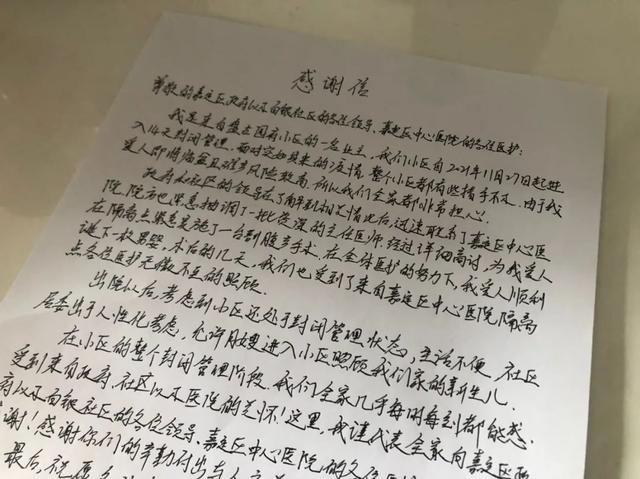 感谢信
尊敬的嘉定区政府以及菊园社区的各位领导、嘉定区中心医院的各位医护：
我是来自盘古国府小区的一名业主，我们小区自2021年11月27日起进
入14天封闭管理。面对突如其来的疫情，整个小区都有些措手不及。由于我
爱人即将临盆且难产风险较高，所以我们全家都非常担心。
政府和社区的领导在了解到相关情况后，迅速联系了嘉定区中心医
院，院方也紧急抽调了一批资深的主任医师，经过详细商讨，为我爱人
在隔离点紧急实施了一台剖腹产手术。在全体医护的努力下，我爱人顺利
诞下一枚男婴。术后的几天，我们也受到了来自嘉定区中心医院隔离
点各位医护无微不至的照顾。
出院以后，考虑到小区还处于封闭管理状态，生活不便，社区
居委出于人性化考虑，允许月嫂进入小区照顾我们家的新生儿。
在小区的整个封闭管理阶段，我们全家几乎每时每刻都能感
受到来自政府、社区以及医院的关怀！这里，我谨代表全家向嘉定区政
府以及菊园社区的各位领导、嘉定区中心医院的各位医护
谢！感谢你们的辛勤付出与人文
最后，祝愿